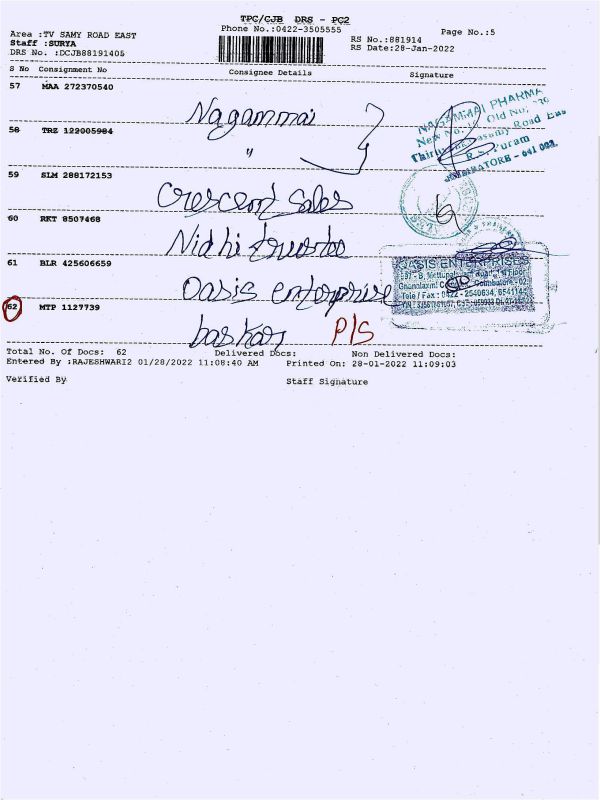 TPC/CJB DRS - PC2
Area :TV SAMY ROAD EAST
Phone No.:0422-3505555
Page No.:5
Staff :SURYA
RS No.:881914
DRS No. :DCJB88191405
RS Date:28-Jan-2022
S No Consignment No Consignee Details Signature
57 MAA 272370540
Nagammai
NAGAMMAI PHARMA
58 TRZ 122005984
"
R.S. Puram
59 SLM 288172153
Crescent Sales
60 RKT 8507468
Nidhi
61 BLR 425606659
Oasis enterprise
OASIS ENTERPRISES
Tele / Fax : 0422 - 2540634,
62 MTP 1127739
baskar P/S
Total No. Of Docs: 62 Delivered Docs: Non Delivered Docs:
Entered By :RAJESHWARI2 01/28/2022 11:08:40 AM Printed On: 28-01-2022 11:09:03
Verified By Staff Signature